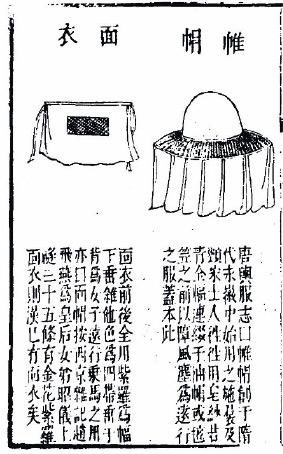 帷帽
唐輿服志曰帷帽創于隋
代永徽中始用之施裙及
頸士人徃徃用皂紗若
青全幅連綴于油帽或氊
笠之前以障風塵為遠行
之服蓋本此
面衣
面衣前後全用紫羅為幅
下垂雜他色為四帶垂于
背為女子遠行乘馬之用
亦曰面帽按西京雜記趙
飛燕為皇后女弟昭儀上
襚三十五條有金花紫羅
面衣則漢已有面衣矣